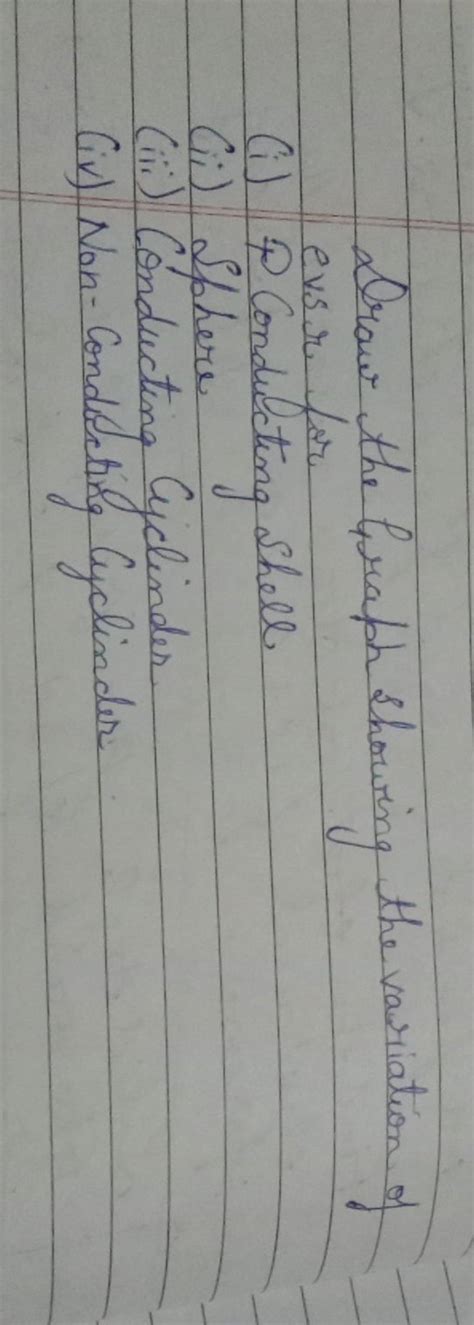 Draw the Graph showing the variation of
e vs r for
(i) Conducting Shell
(ii) Sphere
(iii) Conducting Cyclinder
(iv) Non-Conducting Cyclinder